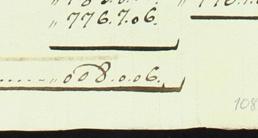 „776.7.06.
„008.0.06.
108